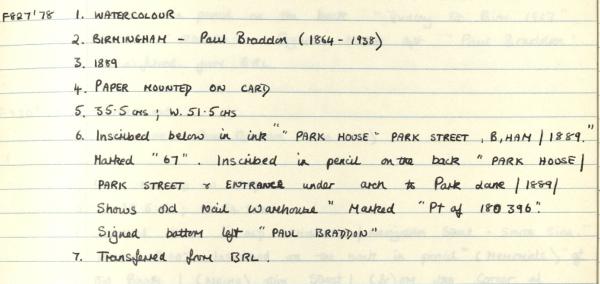 F827'78 1. WATERCOLOUR
2. BIRMINGHAM - Paul Braddon (1864-1938)
3. 1889
4. PAPER MOUNTED ON CARD
5. 35.5 cms ; W. 51.5 cms
6. Inscribed below in ink "PARK HOUSE" PARK STREET, B,HAM / 1889."
Marked "67". Inscribed in pencil on the back "PARK HOUSE/
PARK STREET & ENTRANCE under arch to Park Lane / 1889/
Shows old Nail Warehouse" Marked "Pt of 180396".
Signed bottom left "PAUL BRADDON"
7. Transferred from BRL.